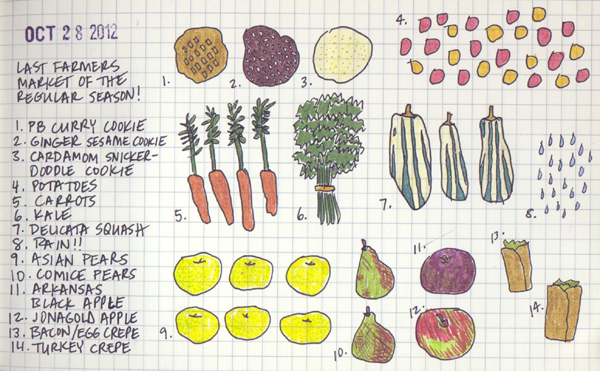 OCT 28 2012
LAST FARMERS
MARKET OF THE
REGULAR SEASON!
1. PB CURRY COOKIE
2. GINGER SESAME COOKIE
3. CARDAMOM SNICKER-
DOODLE COOKIE
4. POTATOES
5. CARROTS
6. KALE
7. DELICATA SQUASH
8. RAIN!!
9. ASIAN PEARS
10. COMICE PEARS
11. ARKANSAS
BLACK APPLE
12. JONAGOLD APPLE
13. BACON/EGG CREPE
14. TURKEY CREPE
1.
2.
3.
4.
5.
6.
7.
8.
9.
10.
11.
12.
13.
14.